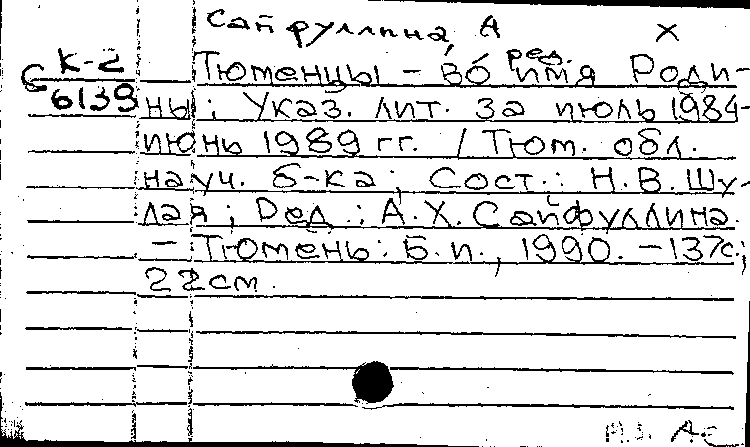 Сайфуллина, А Х
ред.
К-2 Тюменцы - во имя Роди-
С 6139 ны: Указ. лит. за июль 1984-
июнь 1989 гг. / Тюм. обл.
науч. б-ка; Сост.: Н.В. Шу-
лая; Ред.: А.Х. Сайфуллина.
- Тюмень: Б.и., 1990. - 137с.;
22см.